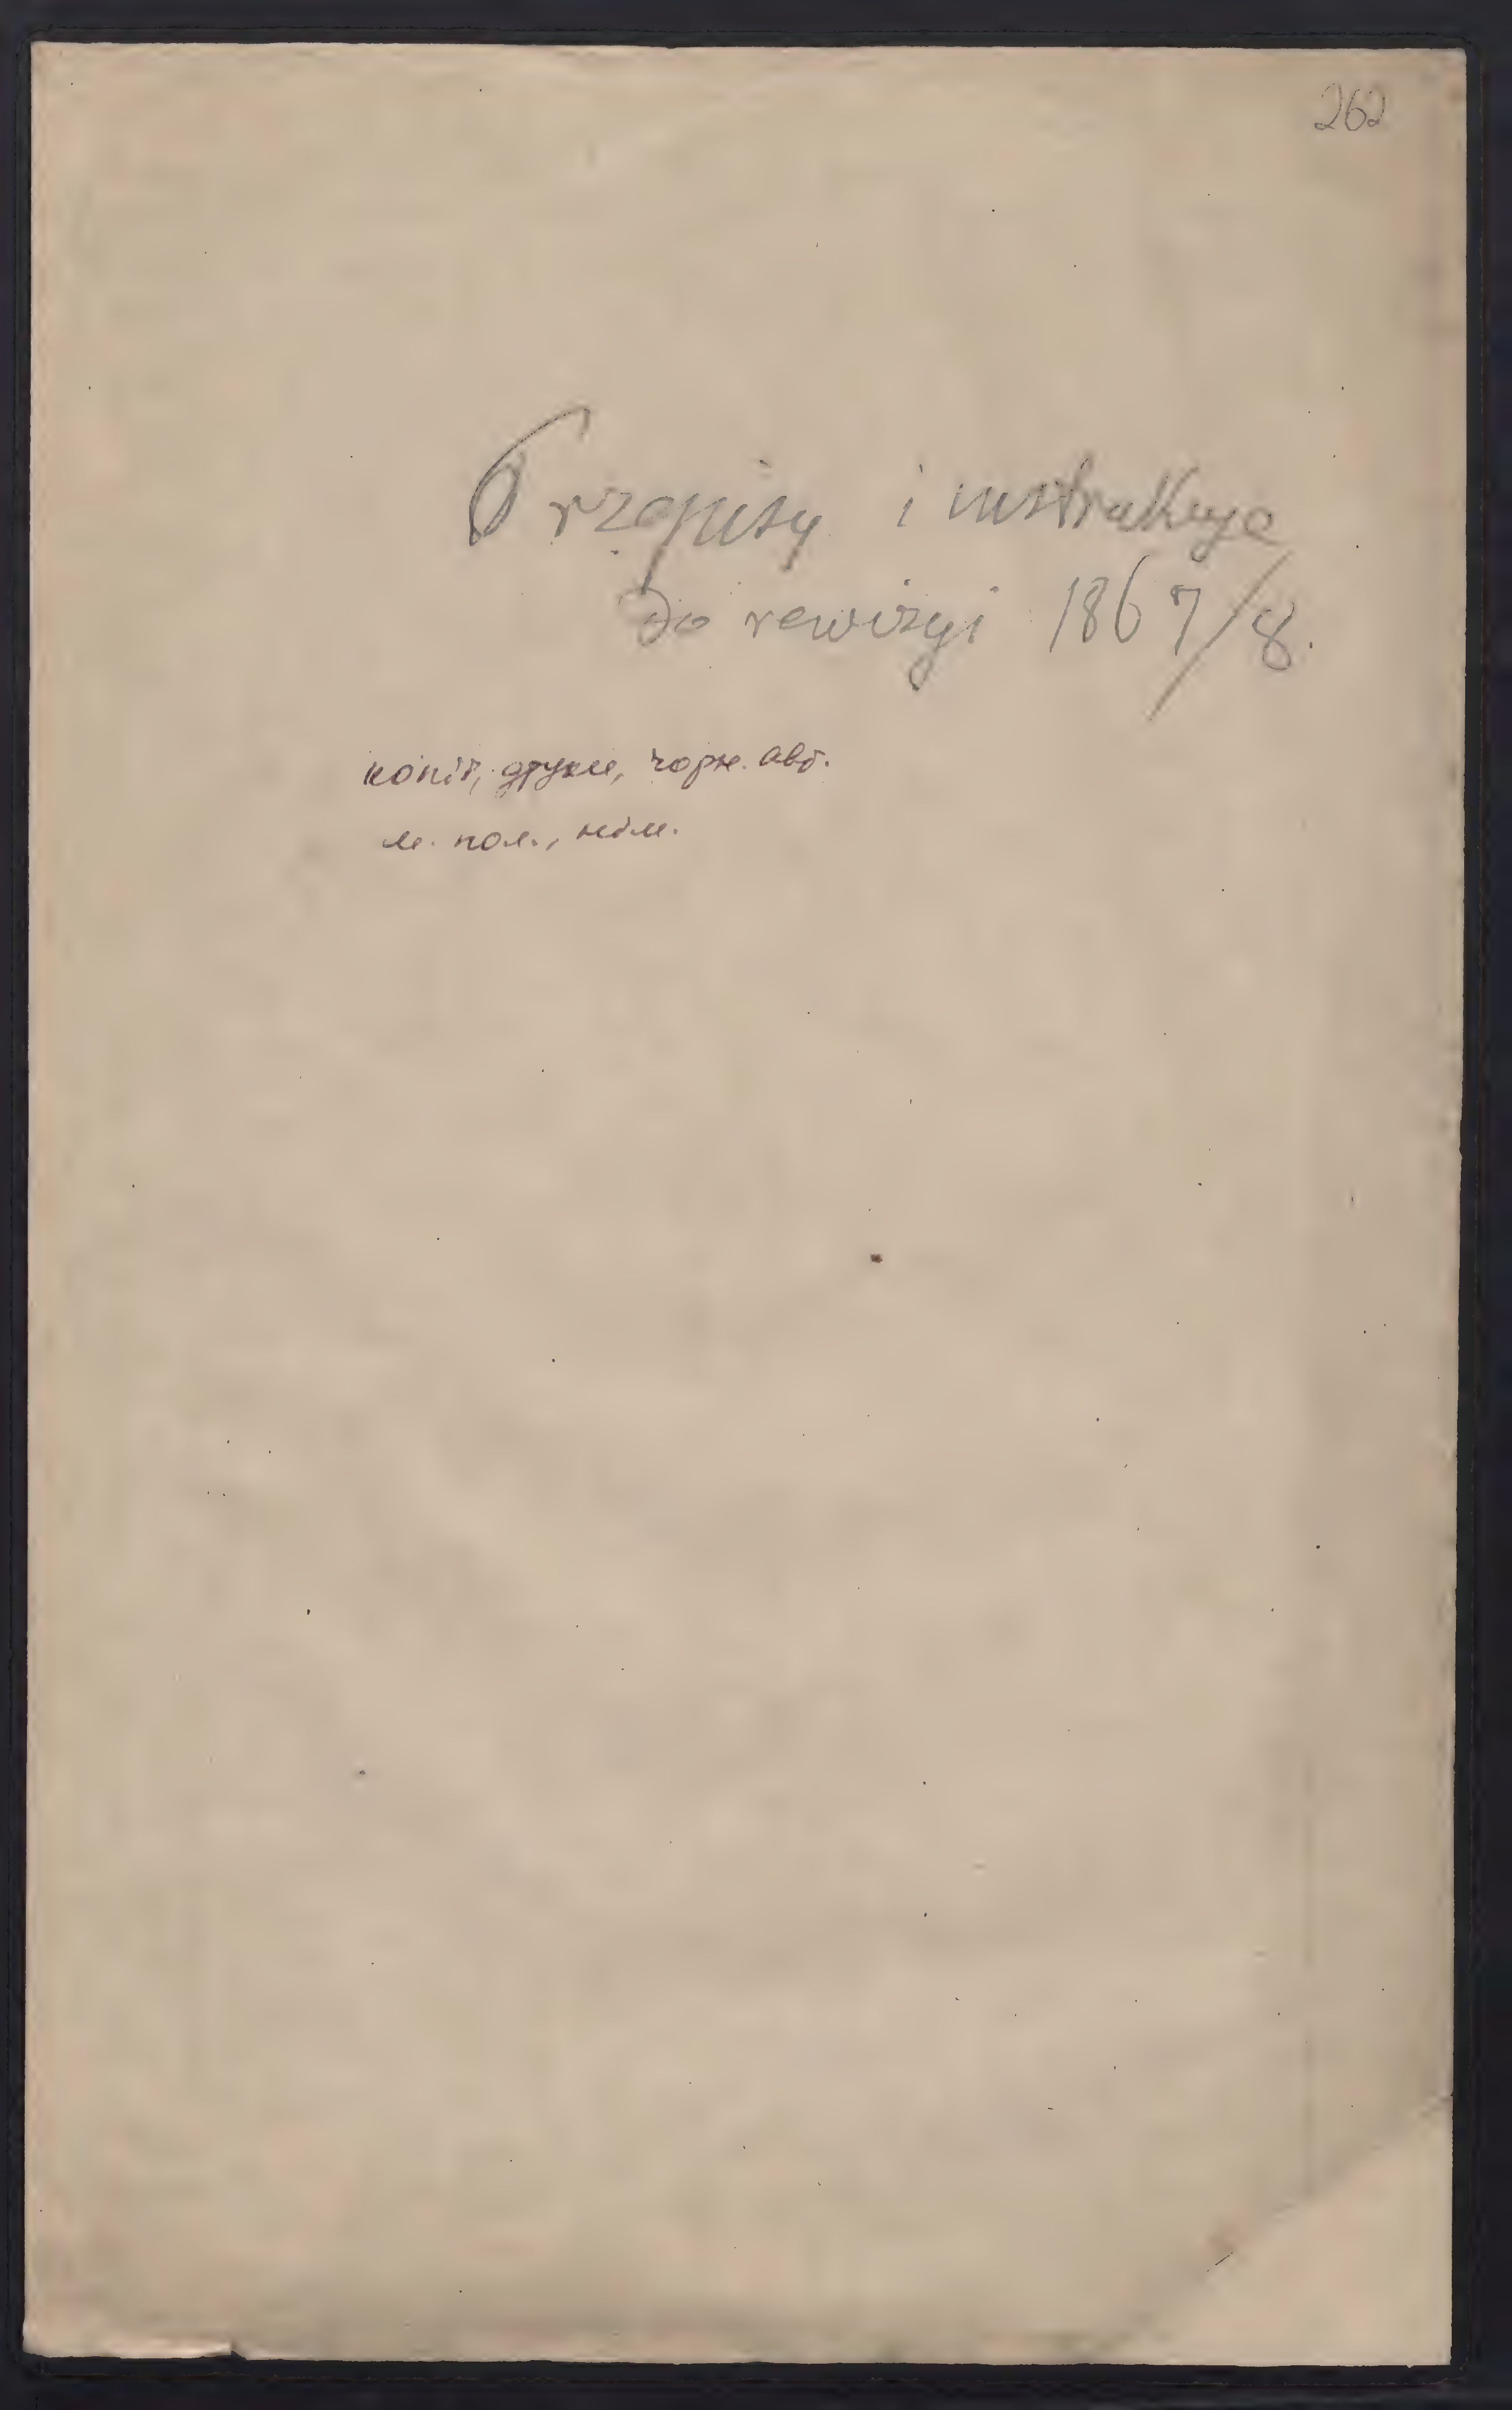 262
Przepisy i instrukcye
do rewizyi 1867/8.
копії, друки, чорн. авт.
м. пол., нім.